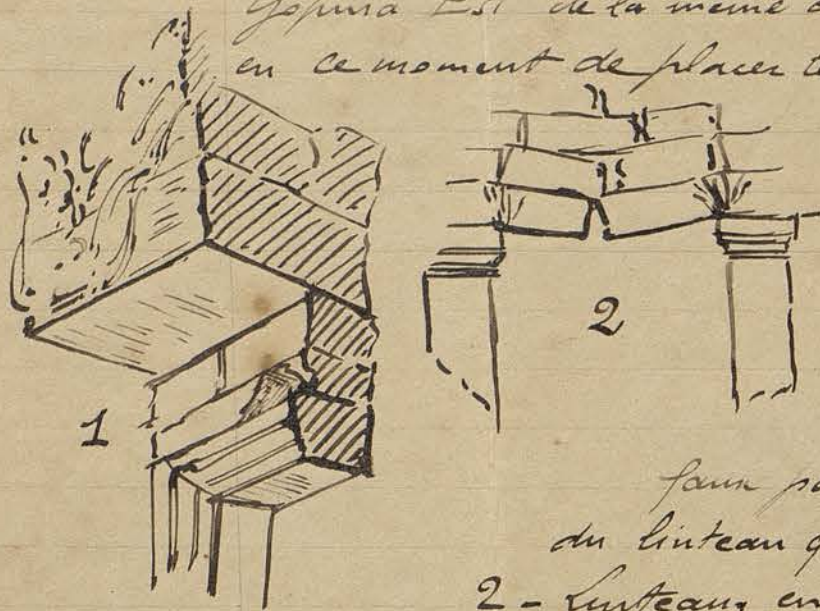 Gopura Est de la même
en ce moment de placer
1
2
faux
du linteau
2 - Linteaux en